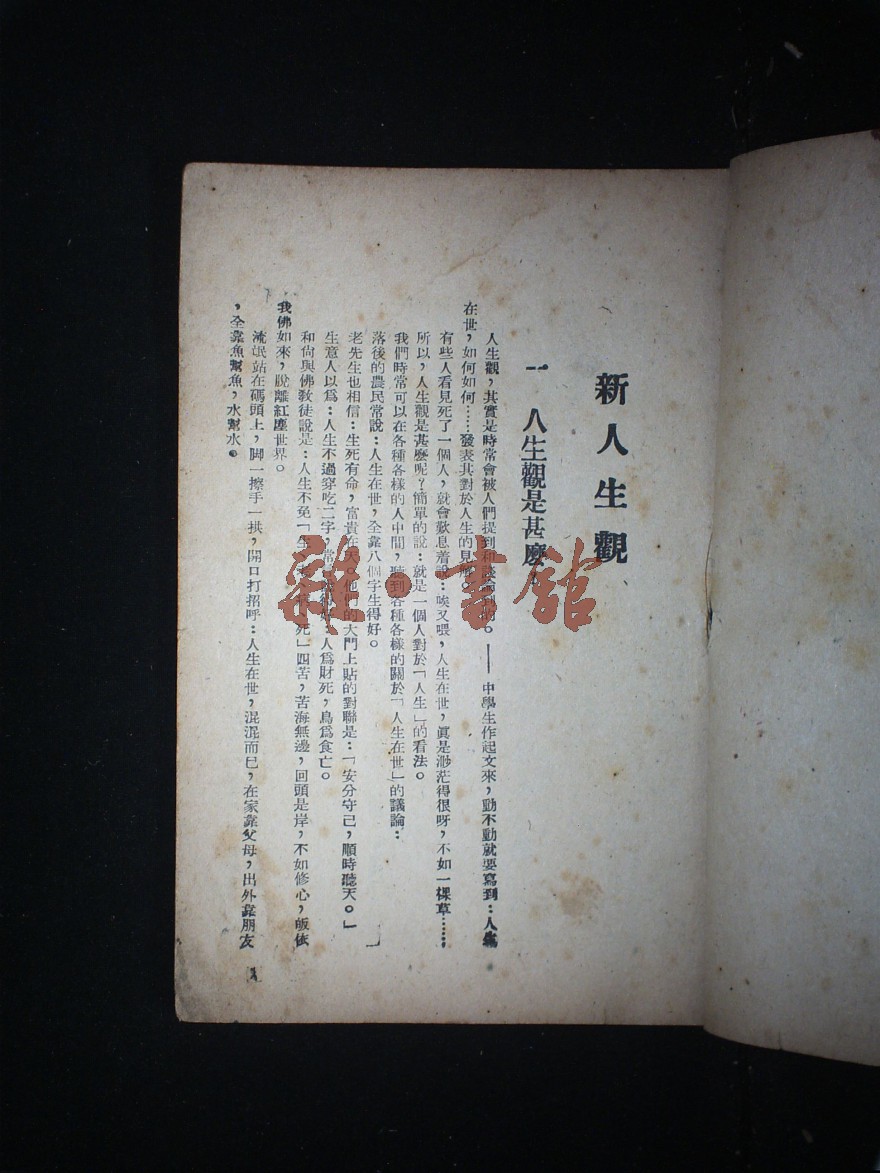 新人生觀
一 人生觀是甚麽？
人生觀，其實是時常會被人們提到和談的。——中學生作起文來，動不動就要寫到：人生
在世，如何如何……發表其對於人生的見解。
有些人看見死了一個人，就會歎息着說：唉又喂，人生在世，眞是渺茫得很呀，不如一棵草……
所以，人生觀是甚麽呢？簡單的說：就是一個人對於「人生」的看法。
我們時常可以在各種各樣的人中間，聽到各種各樣的關於「人生在世」的議論：
落後的農民常說：人生在世，全靠八個字生得好。
老先生也相信：生死有命，富貴在天，他們的大門上貼的對聯是：「安分守己，順時聽天。」
生意人以爲：人生不過穿吃二字，常人爲財死，鳥爲食亡。
和尙與佛敎徒說是：人生不免「生死」四苦，苦海無邊，回頭是岸，不如修心，皈依
我佛如來，脫離紅塵世界。
流氓站在碼頭上，脚一擦手一拱，開口打招呼：人生在世，混混而已，在家靠父母，出外靠朋友
，全靠魚幫魚，水幫水。
雜·書館